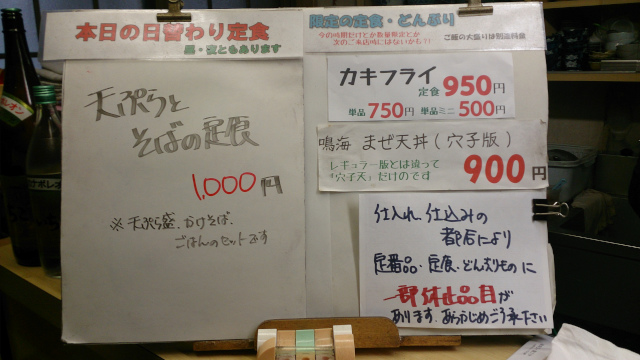 本日の日替わり定食
昼・夜ともあります
天ぷらと
そばの定食
1,000円
※天ぷら盛、かけそば、
ごはんのセットです
限定の定食・どんぶり
今の時期だけとか数量限定とか
次のご来店時にはないかも?!
ご飯の大盛りは別途料金
カキフライ
定食950円
単品750円 単品ミニ500円
鳴海 まぜ天丼(穴子版)
レギュラー版とは違って
「穴子天」だけのです
900円
仕入れ、仕込みの
都合により
定番品・定食・どんぶりものに
一部休止品目が
あります。あらかじめご了承下さい